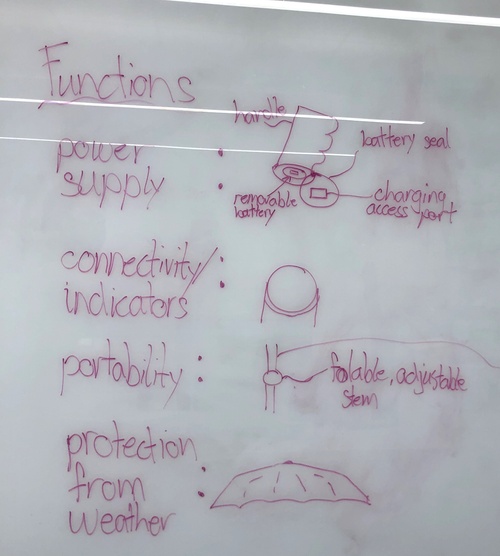 Functions
power
supply :
handle
battery seal
removable
battery
charging
access port
connectivity/ :
indicators
portability :
folable, adjustable
stem
protection
from :
weather